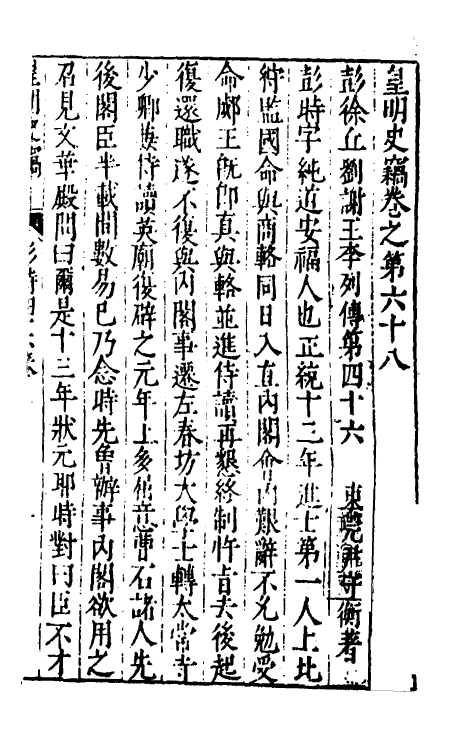 皇明史竊卷之第六十八
彭徐丘劉謝王李列傳第四十六 東莞尹守衡著
彭時字純道安福人也正統十三年進士第一人上北
狩監國命與商輅同日入直內閣會內艱辭不允勉受
命郕王旣卽真與輅並進侍讀再懇終制忤旨去後起
復還職遂不復與內閣事遷左春坊大學士轉太常寺
少卿兼侍讀英廟復辟之元年上多獨意曹石諸人先
後閣臣半載間數易已乃念時先曾辦事內閣欲用之
召見文華殿問曰爾是十三年狀元耶時對曰臣不才
皇明史竊